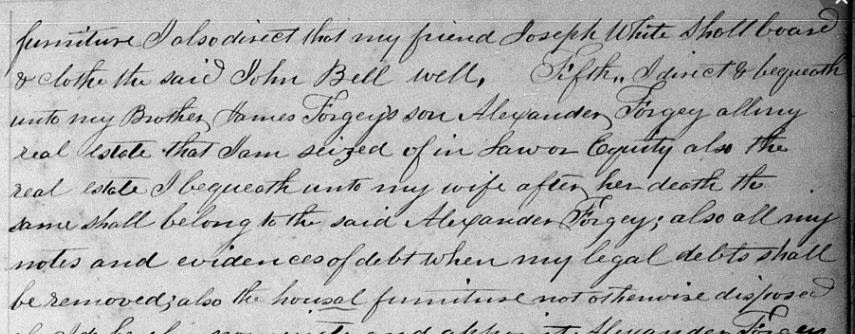 furniture I also direct that my friend Joseph White shall board
& clothe the said John Bell well. Fifth,, I direct & bequeath
unto my Brother James Forgey's son Alexander Forgey all my
real estate that I am seized of in Law or Equity also the
real estate I bequeath unto my wife after her death the
same shall belong to the said Alexander Forgey; also all my
notes and evidences of debt when my legal debts shall
be removed; also the housal furniture not otherwise disposed
and appoint Alexander Forgey